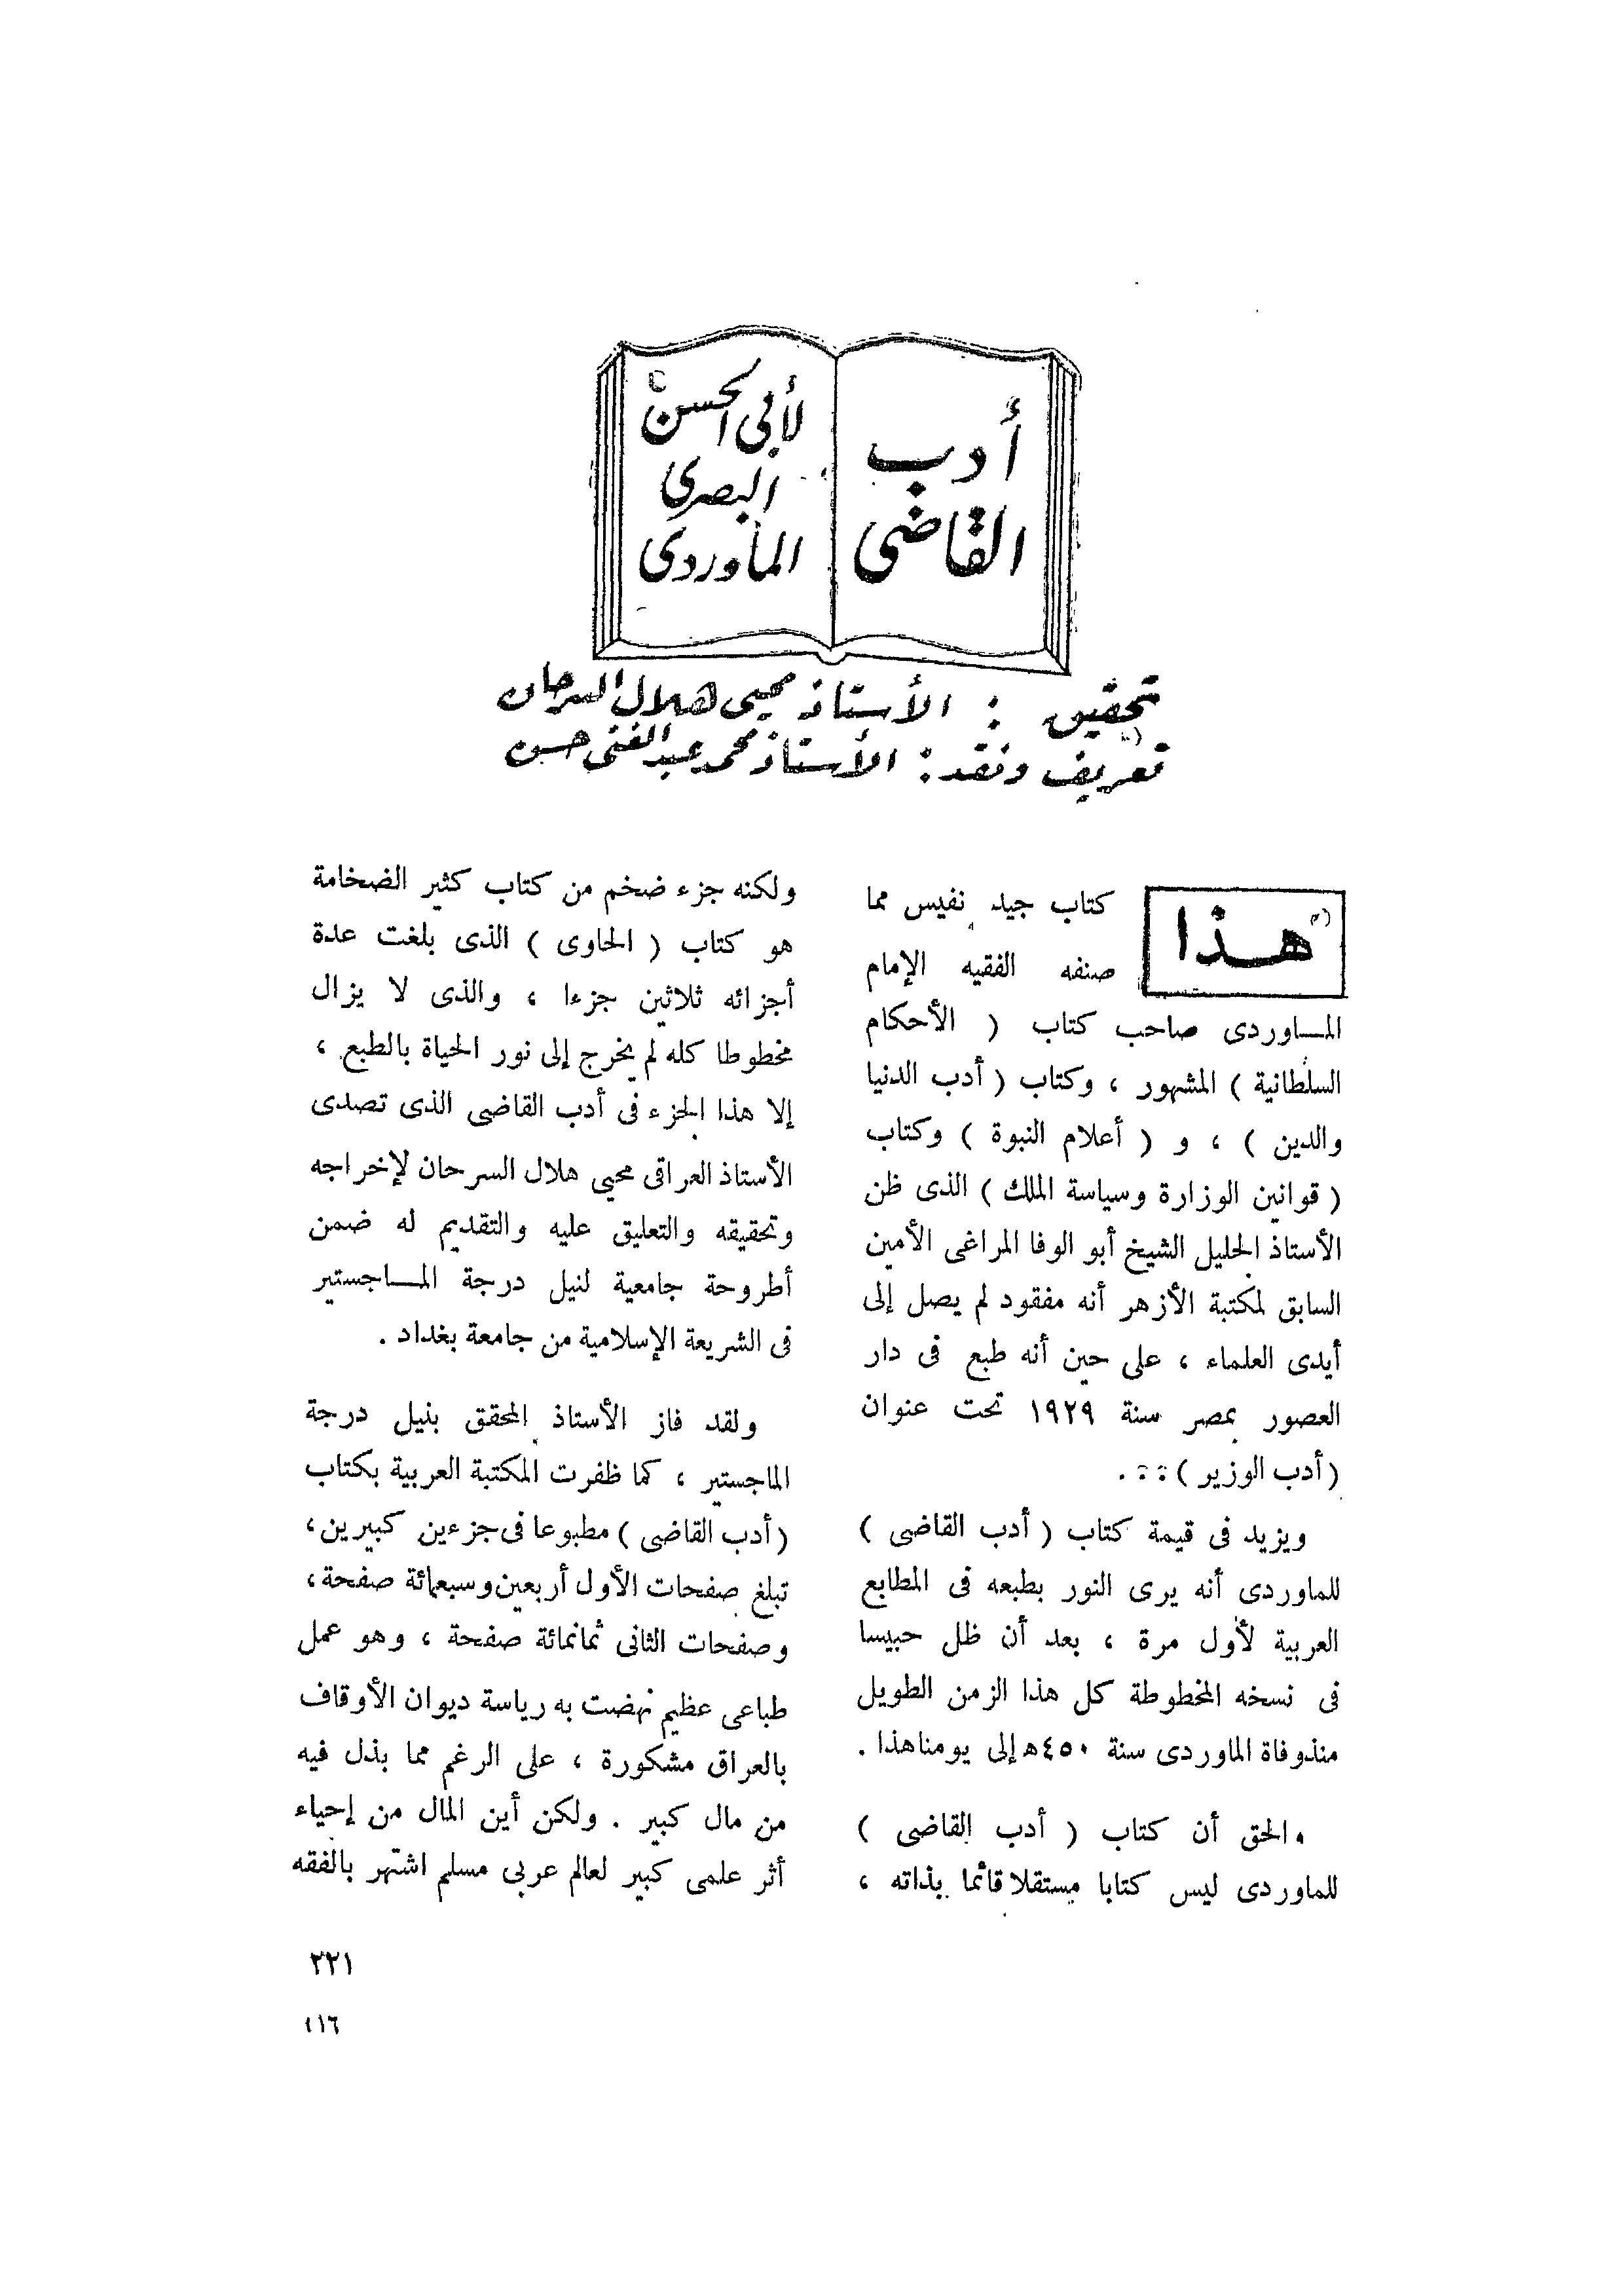 أدب
القاضى
لأبى الحسن
البصرى
الماوردى
تحقيق : الأستاذ محيى هلال السرحان
تعريف ونقد : الأستاذ محمد عبد الغنى حسن
هذا
كتاب جيد نفيس مما
صنفه الفقيه الإمام
المــاوردى صاحب كتاب ( الأحكام
السلطانية ) المشهور ، وكتاب ( أدب الدنيا
والدين ) ، و ( أعلام النبوة ) وكتاب
( قوانين الوزارة وسياسة الملك ) الذى ظن
الأستاذ الجليل الشيخ أبو الوفا المراغى الأمين
السابق لمكتبة الأزهر أنه مفقود لم يصل إلى
أيدى العلماء ، على حين أنه طبع فى دار
العصور بمصر سنة ١٩٢٩ تحت عنوان
( أدب الوزير ) : : .
ويزيد فى قيمة كتاب ( أدب القاضى )
للماوردى أنه يرى النور بطبعه فى المطابع
العربية لأول مرة ، بعد أن ظل حبيسا
فى نسخه المخطوطة كل هذا الزمن الطويل
منذ وفاة الماوردى سنة ٤٥٠ هـ إلى يومنا هذا .
والحق أن كتاب ( أدب القاضى )
للماوردى ليس كتابا مستقلا قائما بذاته ،
ولكنه جزء ضخم من كتاب كثير الضخامة
هو كتاب ( الحاوى ) الذى بلغت عدة
أجزائه ثلاثين جزءا ، والذى لا يزال
مخطوطا كله لم يخرج إلى نور الحياة بالطبع ،
إلا هذا الجزء فى أدب القاضى الذى تصدى
الأستاذ العراقى محيى هلال السرحان لإخراجه
وتحقيقه والتعليق عليه والتقديم له ضمن
أطروحة جامعية لنيل درجة المــاجستير
فى الشريعة الإسلامية من جامعة بغداد .
ولقد فاز الأستاذ المحقق بنيل درجة
الماجستير ، كما ظفرت المكتبة العربية بكتاب
( أدب القاضى ) مطبوعا فى جزءين كبيرين ،
تبلغ صفحات الأول أربعين وسبعمائة صفحة ،
وصفحات الثانى ثمانمائة صفحة ، وهو عمل
طباعى عظيم نهضت به رياسة ديوان الأوقاف
بالعراق مشكورة ، على الرغم مما بذل فيه
من مال كبير . ولكن أين المال من إحياء
أثر علمى كبير لعالم عربى مسلم اشتهر بالفقه
٢٢١
١٦